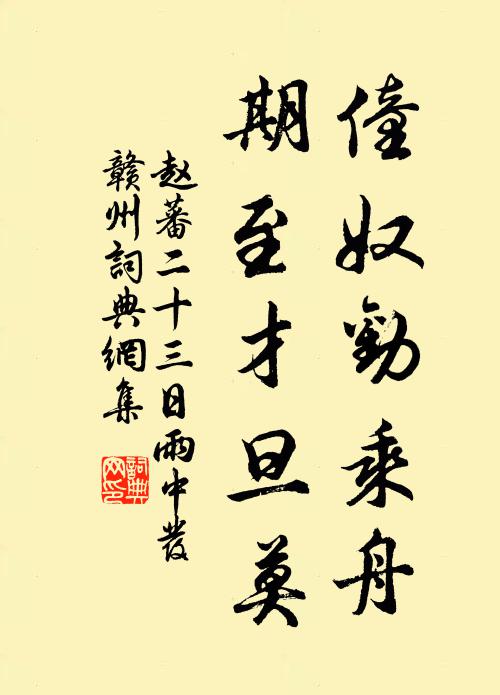 僮奴勸乘舟
期至才旦莫
赵蕃二十三日雨中發
贛州詞典網集
詞典网印